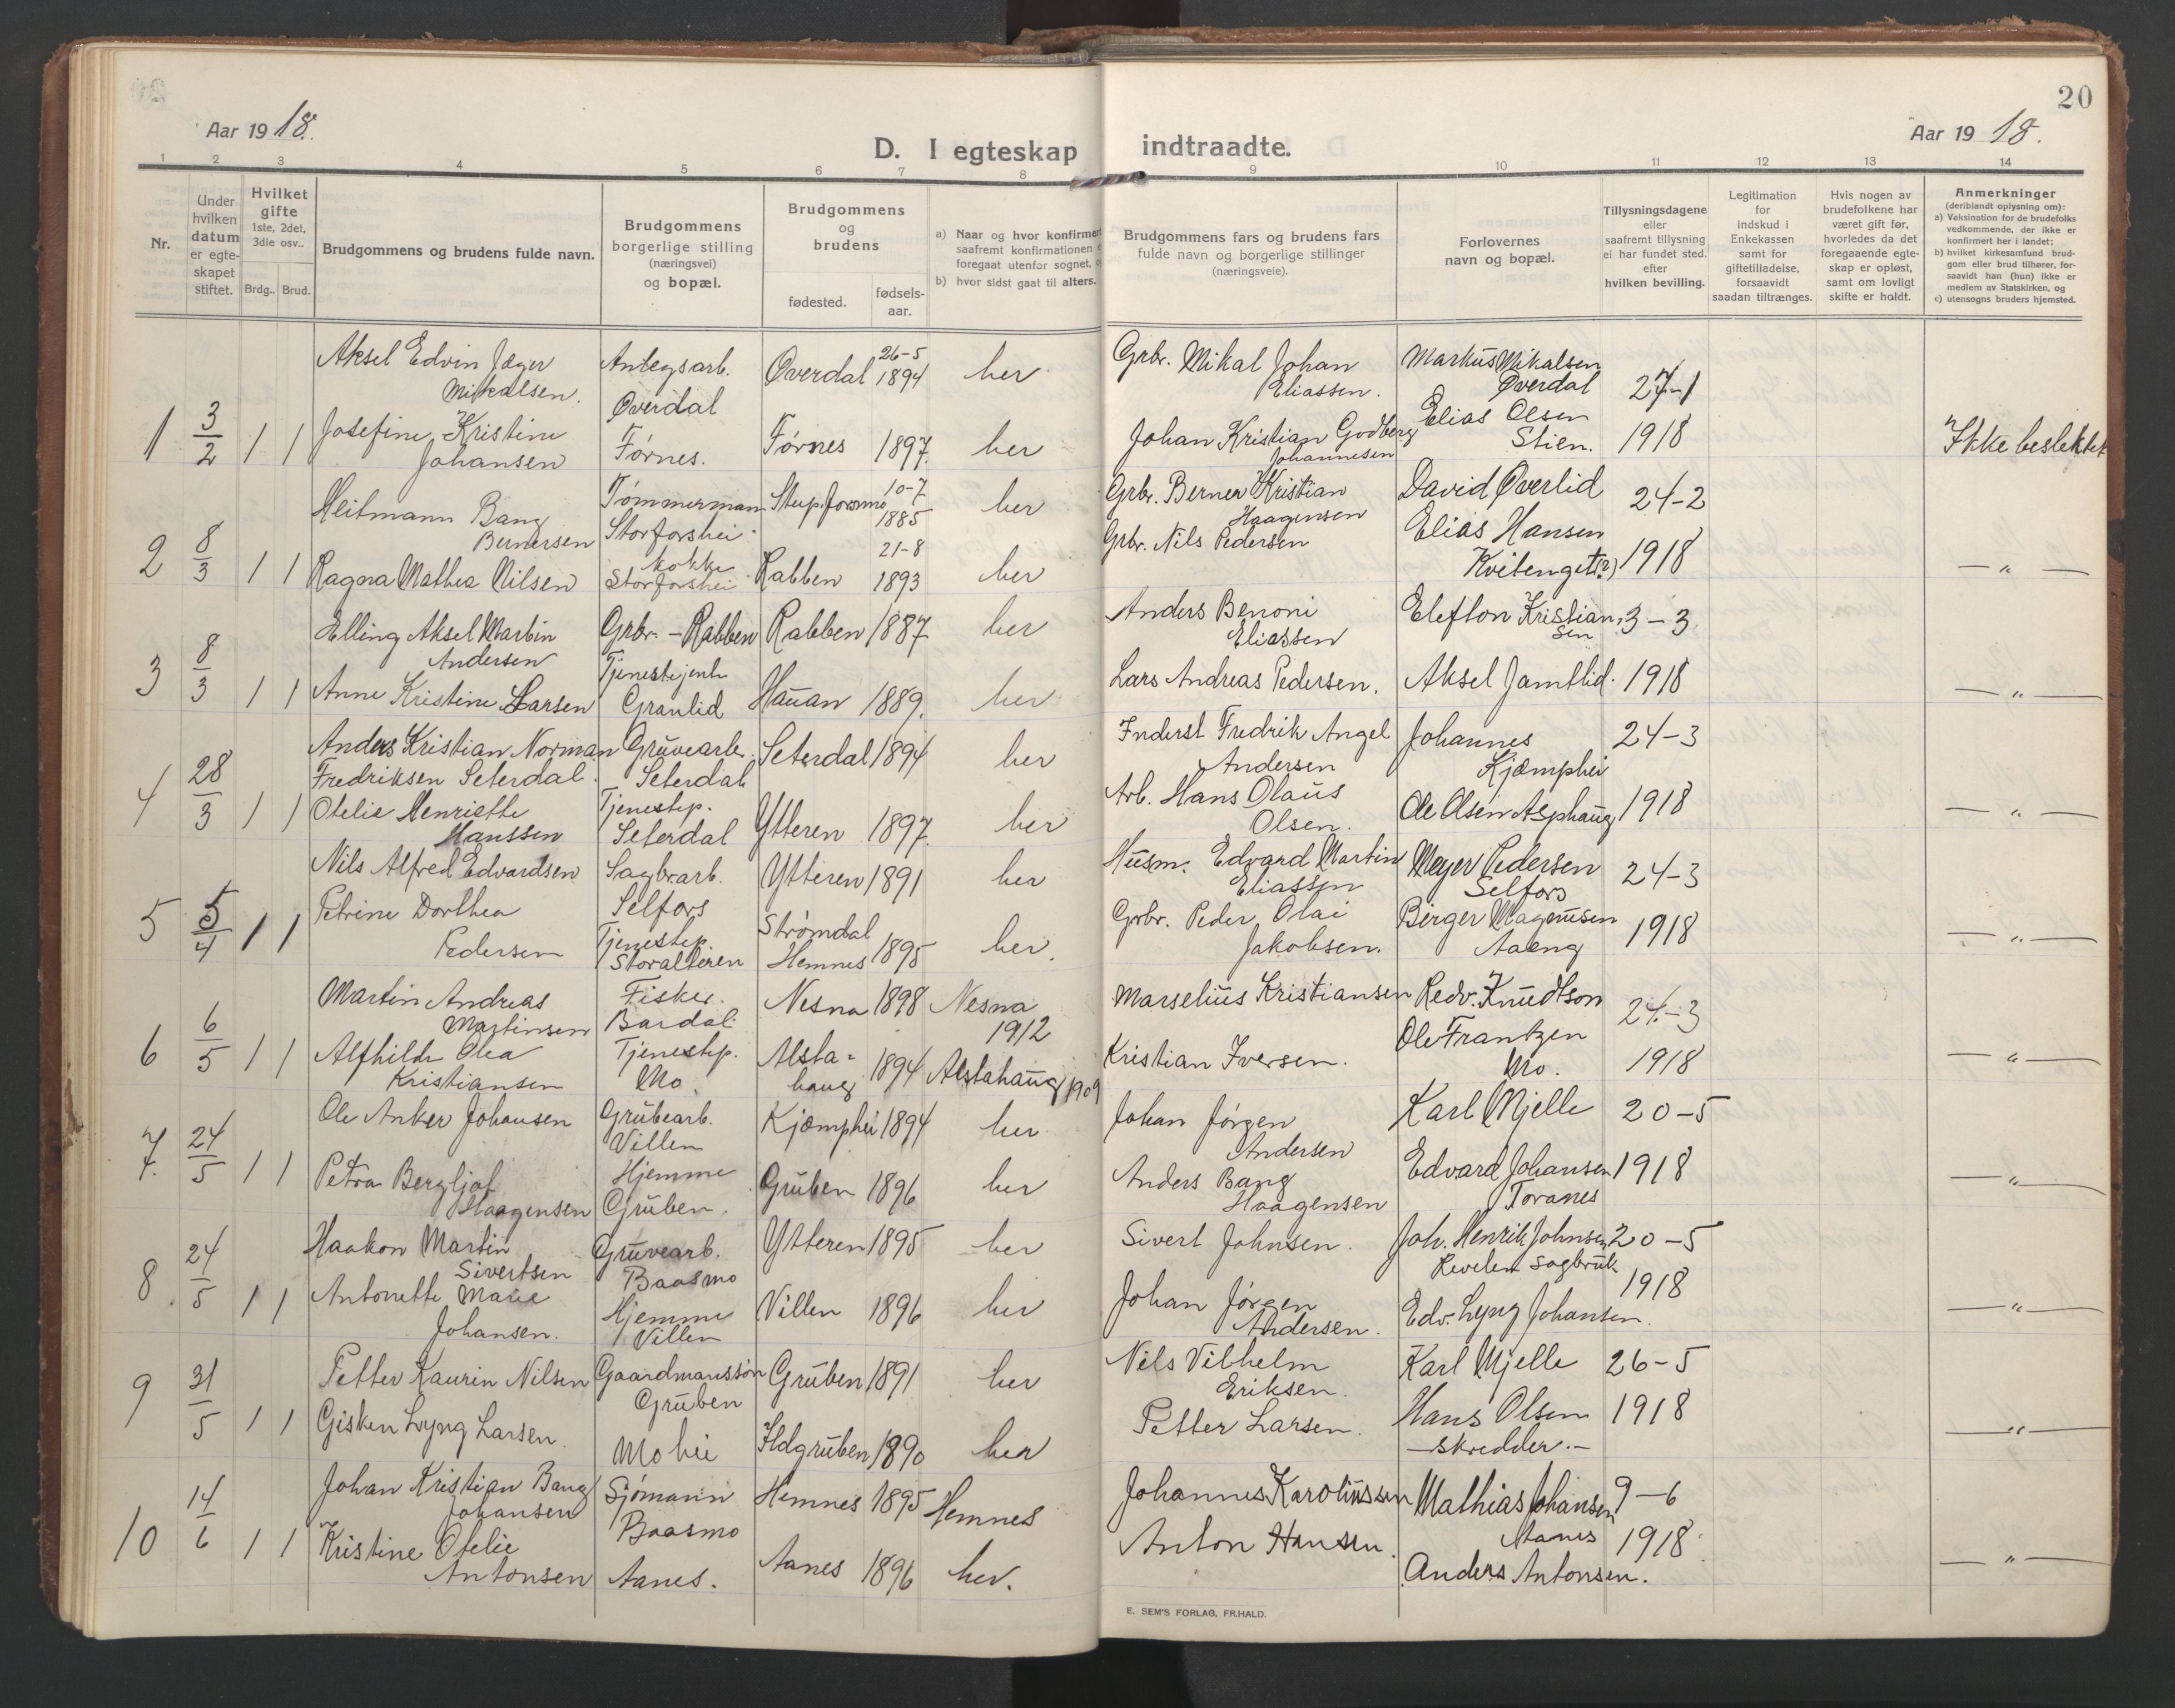 20
Aar 1918.
D. I egteskap indtraadte.
Aar 1918.
1 2 3 4 5 6 7 8 9 10 11 12 13 14
Nr.
Under hvilken datum er egte-skapet stiftet.
Hvilket gifte 1ste, 2det, 3die osv..
Brdg.. Brud.
Brudgommens og brudens fulde navn.
Brudgommens borgerlige stilling (næringsvei) og bopæl.
Brudgommens og brudens
fødested.
fødsels-aar.
a) Naar og hvor konfirmert
saafremt konfirmationen
foregaat utenfor sognet,
b) hvor sidst gaat til alters.
Brudgommens fars og brudens fars
fulde navn og borgerlige stillinger
(næringsveie).
Forlovernes
navn og bopæl.
Tillysningsdagene
eller
saafremt tillysning
ei har fundet sted.
efter
hvilken bevilling.
Legitimation
for
indskud i
Enkekassen
samt for
giftetilladelse,
forsaavidt
saadan tiltrænges.
Hvis nogen av
brudefolkene har
været gift før,
hvorledes da det
foregaaende egte-
skap er opløst,
samt om lovligt
skifte er holdt.
Anmerkninger
(deriblandt oplysning om):
a) Vaksination for de brudefolks
vedkommende, der ikke er
konfirmert her i landet;
b) hvilket kirkesamfund brud-
gom eller brud tilhører, for-
saavidt han (hun) ikke er
medlem av Statskirken, og
c) utensogns bruders hjemsted.
1 3/2 1 1
Aksel Edvin Jæger Mikalsen. Anlegsarb. Øverdal Øverdal 26-5 1894 her Grbr. Mikal Johan Eliassen. Markus Mikalsen Øverdal 27-1
Josefine Kristine Johansen Førnes. Førnes 1897. her Johan Kristian Godberg Johannesen Elias Olsen Stien. 1918 Ikke beslektet
2 8/3 1 1
Heitmann Bang Bernersen Tømmermann Storforshei Stup.forsmo 10-7 1885 her Grbr. Berner Kristian Haagensen David Øverlid 24-2
Ragna Mathea Nilsen kokke Storforshei Rabben 21-8 1893 her Grbr. Nils Pedersen Elias Hansen Kvitenget(?) 1918 — " —
3 8/3 1 1
Elling Aksel Martin Andersen Grbr. - Rabben Rabben 1887 her Anders Benoni Eliassen Elefton Kristiansen 3-3
Anne Kristine Larsen Tjenestejente Granlid Hauan 1889. her Lars Andreas Pedersen. Aksel Jamtlid. 1918 — " —
4 28/3 1 1
Anders Kristian Norman Fredriksen Seterdal. Gruvearb. Seterdal Seterdal 1894 her Inderst Fredrik Angel Andersen Johannes Kjæmphei 24-3
Otelie Henriette Hanssen Tjenestep. Seterdal Ytteren 1897. her Arb. Hans Olaus Olsen. Ole Olsen Asphaug 1918 — " —
5 5/4 1 1
Nils Alfred Edvardsen Sagbr.arb. Selfors Ytteren 1891 her Husm. Edvard Martin Eliassen Meyer Pedersen Selfors 24-3
Petrine Dorthea Pedersen Tjenestep. Storalteren Strømdal Hemnes 1895 her. Grbr. Peder Olai Jakobsen. Birger Magnusen Aaeng 1918 — " —
6 6/5 1 1
Martin Andreas Martinsen Fisker. Bardal. Nesna 1898 Nesna 1912 Marselius Kristiansen Redv. Knudtson 24-3
Alfhilde Olea Kristiansen Tjenestep. Mo. Alstahaug 1894 Alstahaug 1909 Kristian Iversen. Ole Frantzen Mo. 1918 — " —
7. 24/5 1 1
Ole Anker Johansen Grubearb. Villen Kjæmphei 1894 her Johan Jørgen Andersen Karl Mjelle 20-5
Petra Bergljot Haagensen Hjemme Gruben. Gruben 1896 her Anders Bang Haagensen Edvard Johansen Toranes 1918 — " —
8. 24/5 1 1
Haakon Martin Sivertsen Gruvearb. Baasmo Ytteren 1895 her Sivert Johnsen. Joh. Henrik Johnsen Revelen sagbruk 20-5
Antonette Marie Johansen. Hjemme Villen Villen 1896 her Johan Jørgen Andersen. Edv. Lyng Johansen. 1918 — " —
9 31/5 1 1
Petter Kaurin Nilsen Gaardmanssøn Gruben Gruben 1891 her Nils Vilhelm Eriksen. Karl Mjelle 26-5
Gisken Lyng Larsen. Mohei Ildgruben 1890 her Petter Larsen. Hans Olsen - skredder. - 1918 — " —
10 14/6 1 1
Johan Kristian Bang Johansen Sjømann Baasmo Hemnes 1895 Hemnes Johannes Karoliussen Mathias Johansen Aanes 9-6
Kristine Otelie Antonsen Aanes. Aanes 1896 her. Anton Hansen. Anders Antonsen. 1918. — " —
E. SEM'S FORLAG, FR.HALD.